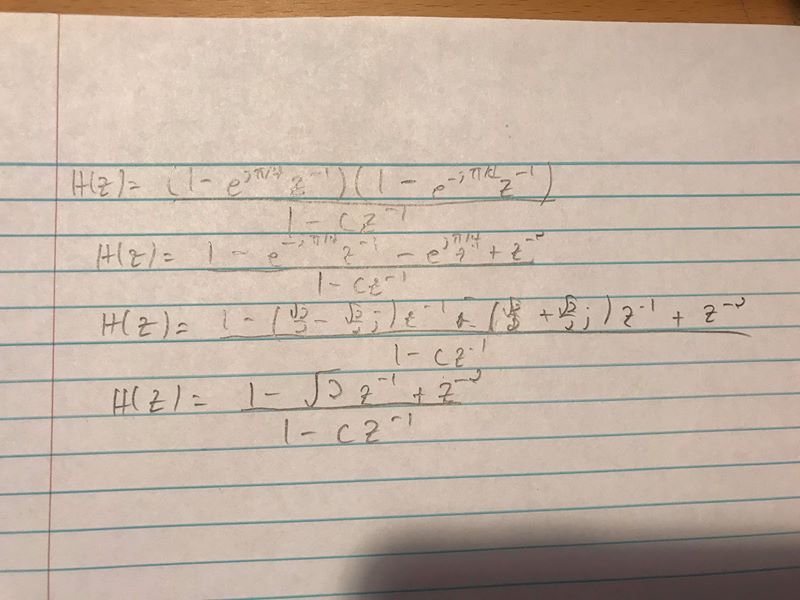 H(z) = (1 - e^{jπ/4} z^{-1})(1 - e^{-jπ/4} z^{-1}) / (1 - cz^{-1})
H(z) = (1 - e^{-jπ/4} z^{-1} - e^{jπ/4} z^{-1} + z^{-2}) / (1 - cz^{-1})
H(z) = (1 - (√2/2 - √2/2 j) z^{-1} - (√2/2 + √2/2 j) z^{-1} + z^{-2}) / (1 - cz^{-1})
H(z) = (1 - √2 z^{-1} + z^{-2}) / (1 - cz^{-1})